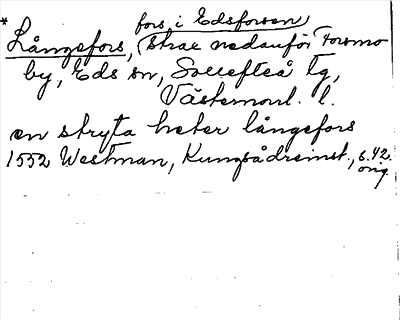 * fors, i Edsforsen
Långefors, (strax nedanför Forsmo
by, Eds sn, Sollefteå tg,
Västernorrl. l.
en stryta heter långefors
1552 Westman, Kungsådreinst., s. 42.
orig.